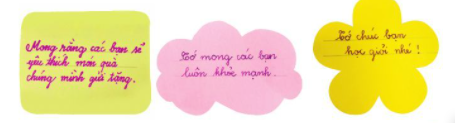 Mong rằng các bạn sẽ
yêu thích món quà
chúng mình gửi tặng.
Tớ mong các bạn
luôn khỏe mạnh.
Tớ chúc bạn
học giỏi nhé !